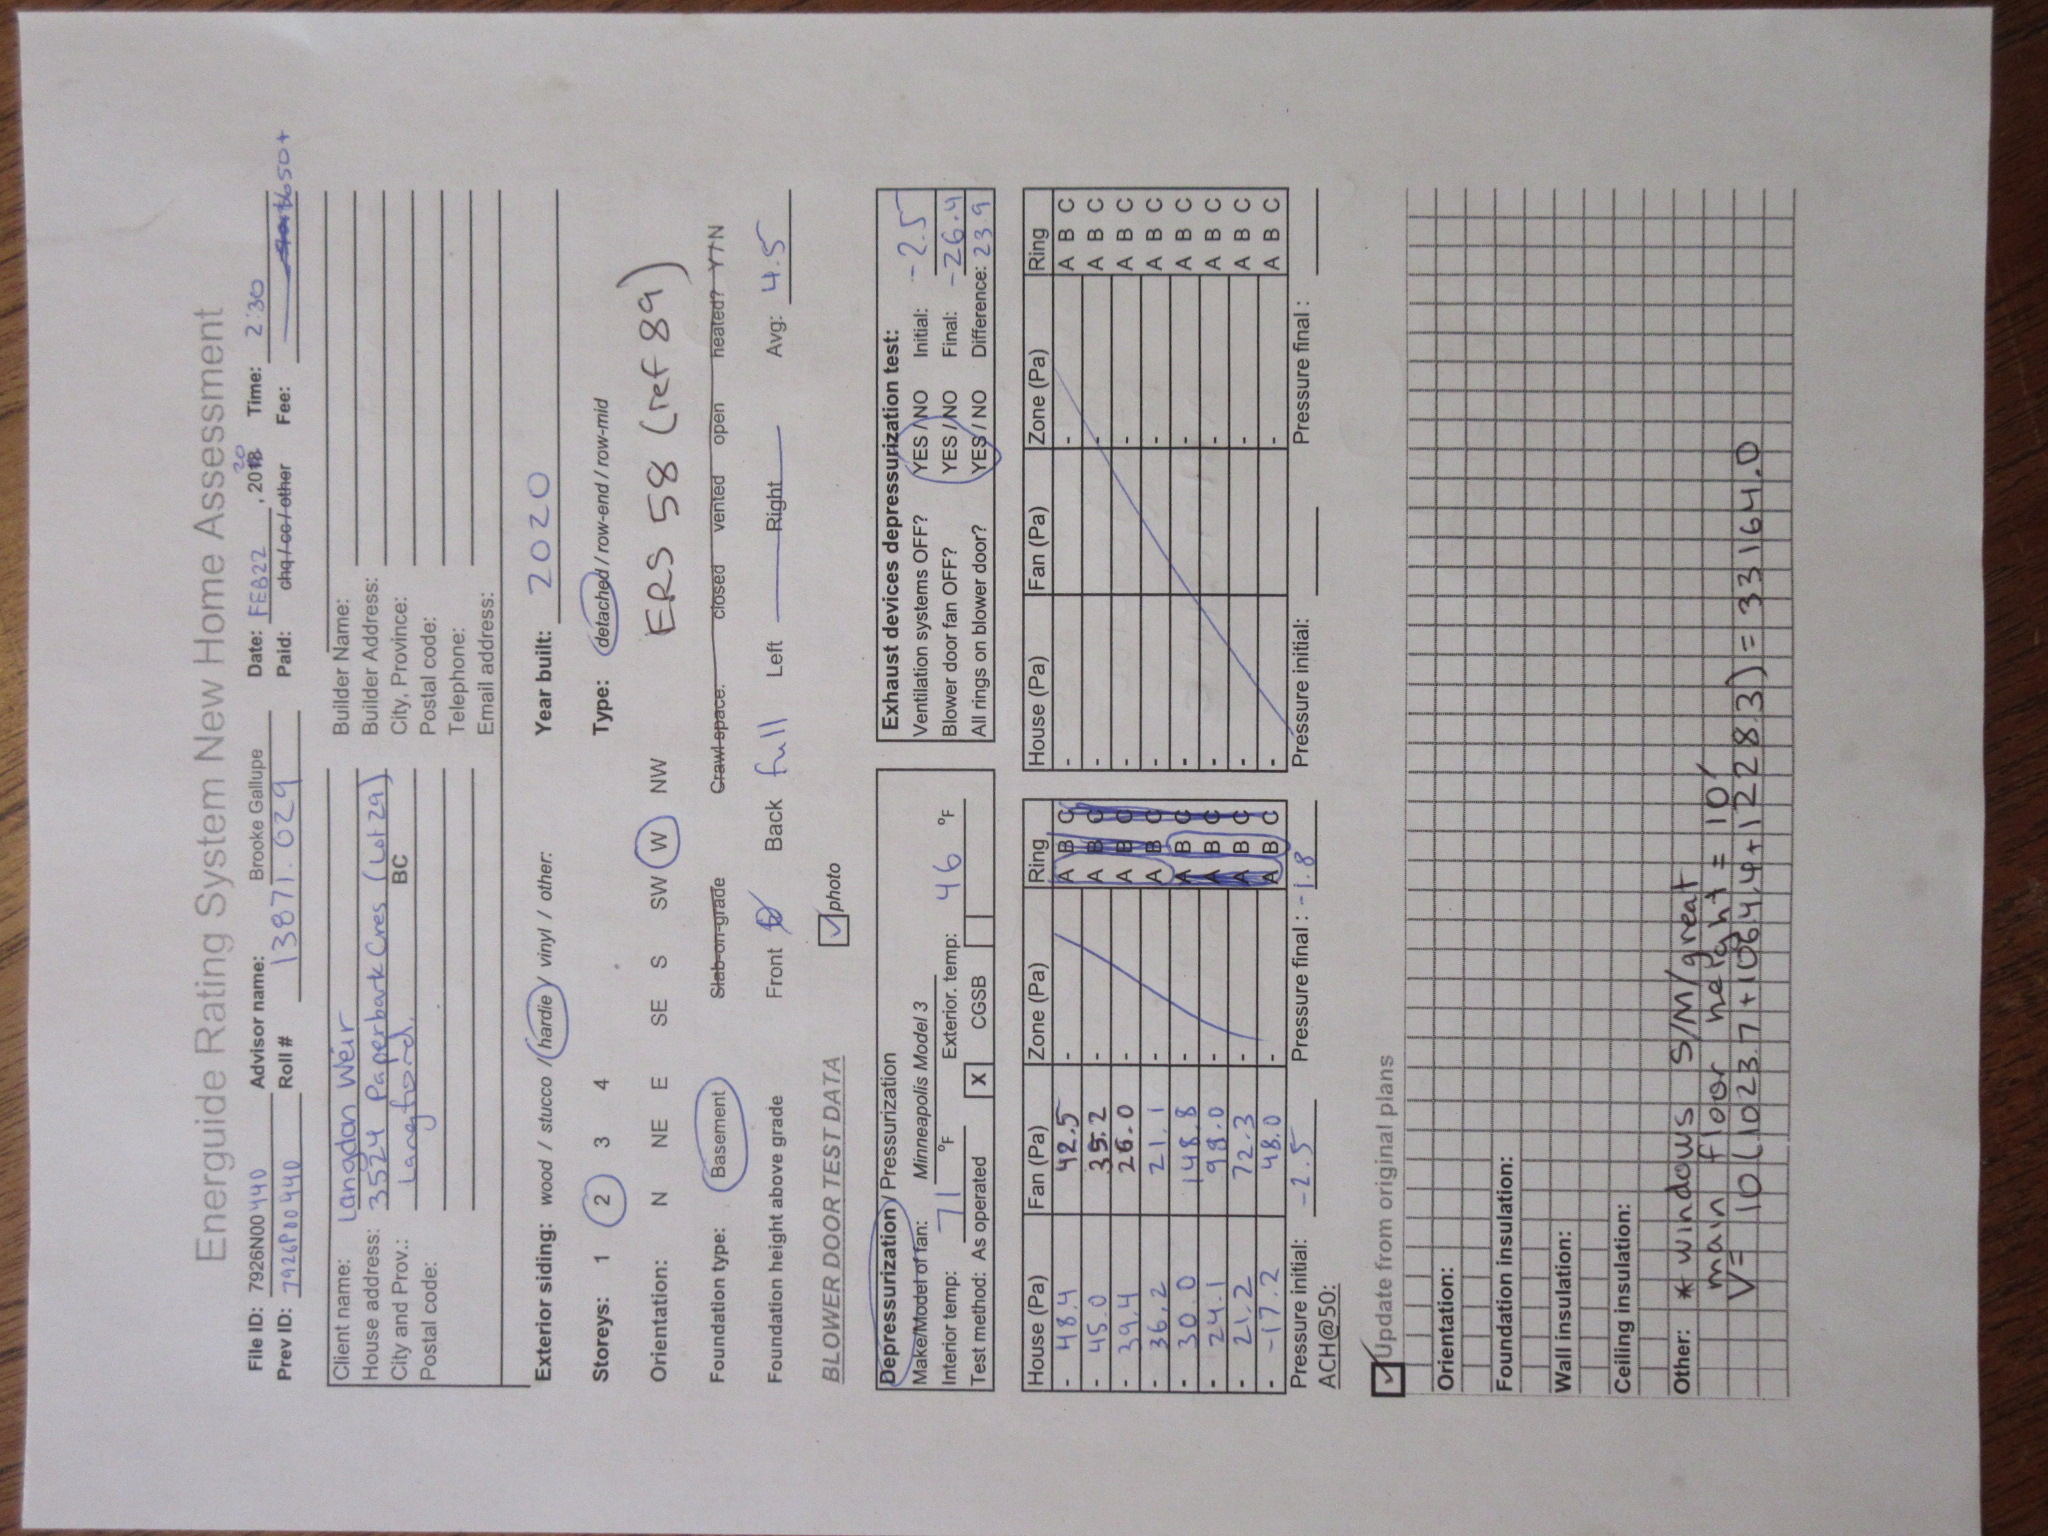 Energuide Rating System New Home Assessment
File ID: 7926N00440 Advisor name: Brooke Gallupe Date: FEB22, 2020 Time: 2:30
Prev ID: 7926P00440 Roll # 13871.029 Paid: chq / cc / other Fee: 650+
Client name: Langdon Weir
House address: 3524 Paperbark Cres (Lot 29)
City and Prov.: Langford, BC
Postal code:
Builder Name:
Builder Address:
City, Province:
Postal code:
Telephone:
Email address:
Exterior siding: wood / stucco / hardie / vinyl / other: Year built: 2020
Storeys: 1 2 3 4 Type: detached / row-end / row-mid
Orientation: N NE E SE S SW W NW ERS 58 (ref 89)
Foundation type: Basement Slab-on-grade Crawl space: closed vented open heated? Y / N
Foundation height above grade Front Back full Left Right Avg: 4.5
BLOWER DOOR TEST DATA photo
Depressurization / Pressurization
Make/Model of fan: Minneapolis Model 3
Interior temp: 71 °F Exterior. temp: 46 °F
Test method: As operated X CGSB
Exhaust devices depressurization test:
Ventilation systems OFF? YES / NO Initial: -2.5
Blower door fan OFF? YES / NO Final: -26.4
All rings on blower door? YES / NO Difference: 23.9
House (Pa) Fan (Pa) Zone (Pa) Ring
- 48.4 42.5 - A B C
- 45.0 35.2 - A B C
- 39.4 26.0 - A B C
- 36.2 21.1 - A B C
- 30.0 148.8 - A B C
- 24.1 99.0 - A B C
- 21.2 72.3 - A B C
- -17.2 48.0 - A B C
Pressure initial: -2.5 Pressure final : -1.8
ACH@50:
House (Pa) Fan (Pa) Zone (Pa) Ring
- - A B C
- - A B C
- - A B C
- - A B C
- - A B C
- - A B C
- - A B C
- - A B C
Pressure initial: Pressure final :
Update from original plans
Orientation:
Foundation insulation:
Wall insulation:
Ceiling insulation:
Other: * windows S/M/great
main floor height = 10'
V= 10(1023.7+1064.4+1228.3) = 33164.0